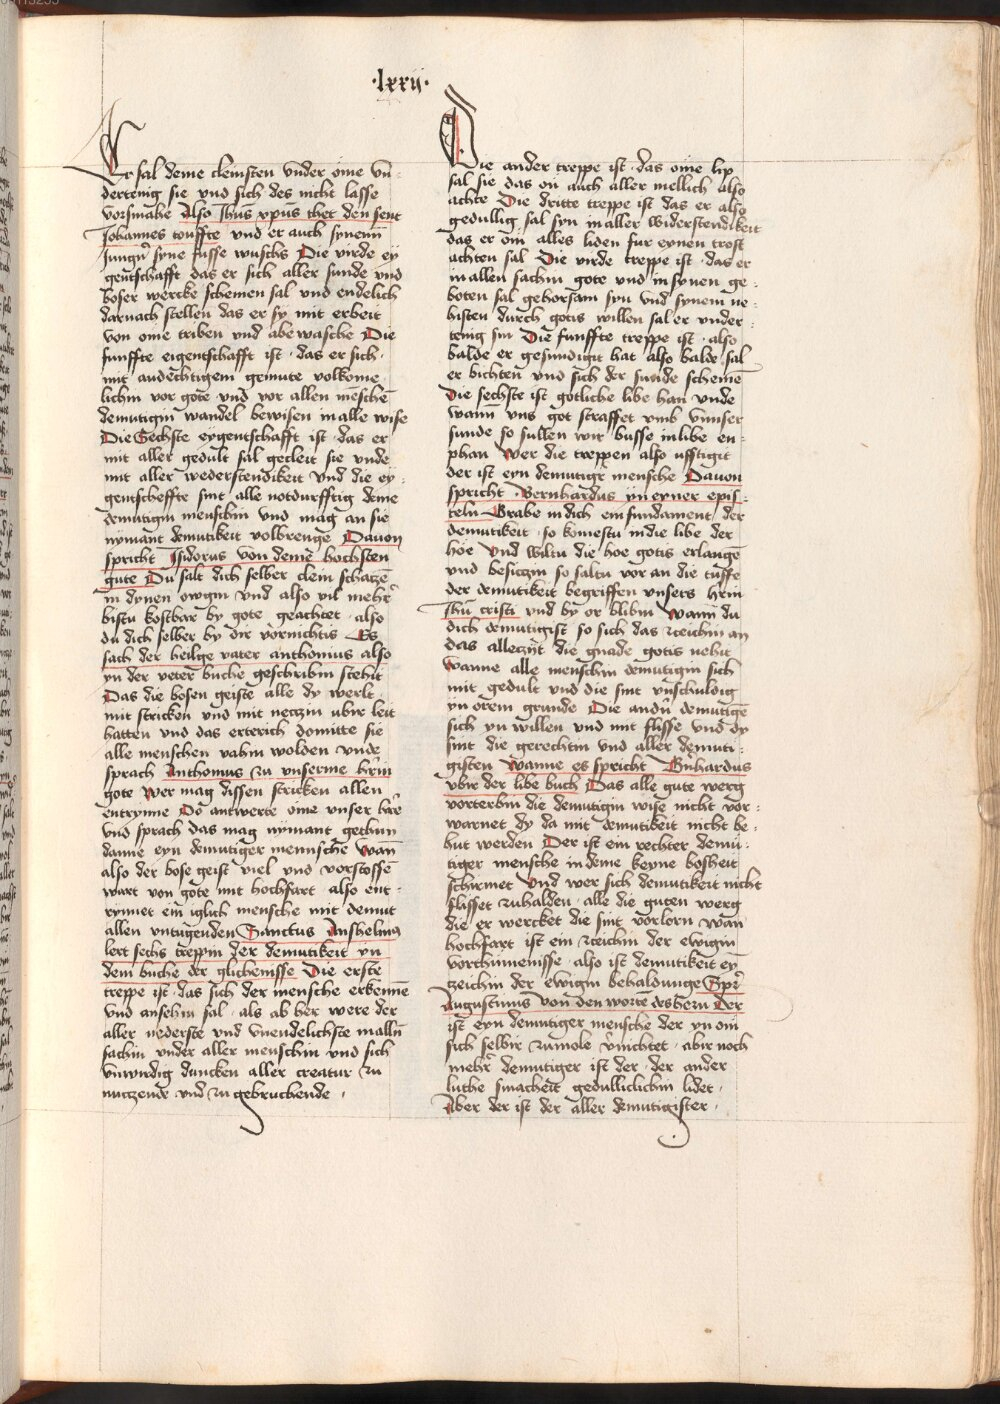 ·lxxij·
Er sal deme cleinsten vnder ome vn
dertenig sie vnd sich des nicht lasse
vorsmahe Also Ihus xpus thet den sent
Johannes touffte vnd er auch synenn
Jungn̄ syne fusse wuschs Die virde ey
gentschafft das er sich aller sunde vnd
boser wercke schemen sal vnd endelich
darnach stellen das er sy mit erbeit
von ome triben vnd abe wasche Die
funffte eigentschafft ist · das er sich ·
mit andechtigem gemute volkome
lichin vor gote vnd vor allen mēschē
demutigin wandel bewisen in alle wise
Die Sechste eygentschafft ist · das er
mit aller gedult sal gecleit sie vnde
mit aller wederstendikeit vnd die ey
gentscheffte sint alle notdurfftig deme
demutigin menschin vnd mag an sie
nymant demutikeit volbrenge Dauon
spricht Isidorus von deme hochsten
gute Du salt dich selber clein schatzē
in dynen owgin vnd also vil mehr
bistu kostbar by gote geachtet · also
du dich selber by dir vornichtis Es
sach der heilge vater anthonius also
yn der veter buche geschribin stehit
Das die bosen geiste alle dy werlt
mit stricken vnd mit netzin vbir leit
hatten vnd das erterich domitte sie
alle menschen vahin wolden vnde
sprach Anthonius zu vnserme hr̄in
gote Wer mag dissen stricken allen
entrynne Do antwerte ome vnser hr̄e
vnd sprach das mag nymant gethun
danne eyn demutiger mennsche Wan̄
also der bose geist viel vnd vorstossē
wart von gote mit hochfart · also ent
rynnet ein iglich mensche mit demut
allen vntugenden Sanctus Anshelmus
lert sechs treppin der demutikeit yn
dem buche der glichenisse Die erste
treppe ist · das sich der mensche erkenne
vnd ansehin sal · als ab her were der
aller nederste vnd vnendelichste in alln̄
sachin vnder aller menschin vnd sich
vnwirdig duncken aller creatur zu
nutzende vnd zu gebruchende ·
Die ander treppe ist · das ome lip
sal sie das on auch aller mellich also
achte Die dritte treppe ist das er also
gedullig sal syn in aller widerstendikeit
das er om̄ alles liden fur eynen trost
achten sal Die virde treppe ist · das er
in allen sachin gote vnd in synen ge
boten sal gehorsam syn vnd synem ne
histen durch gotis willen sal er vnder
tenig sin Die funffte treppe ist · also
balde er gesundigit hat also balde sal
er bichten vnd sich der sunde schemē
Die sechste ist gotliche libe han vnde
wann vns got straffet vmb vnnser
sunde so sullen wir busse in libe en
phan Wer die treppen also vfftigit
der ist eyn demutige mensche Dauon
spricht · Bernhardus yn eyner epis
teln Grabe in dich ein fundament der
demutikeit · so komestu in die libe der
hoe vnd wiltu die hoe gotis erlangē
vnd besitzin so saltu vor an die tuffe
der demutikeit begriffen vnsers hrin
Ihu cristi vnd by or blibin Wann du
dich demutigist so sich das zceichin an
das alleczijt die gnade gotis nehit
Wanne alle menschin demutigin sich
mit gedult vnd die sint vnschuldig
yn orem grunde Die andn̄ demutigē
sich yn willen vnd mit flisse vnd dy
sint die gerechtin vnd aller demuti
gisten Wanne es spricht Bn̄hardus
vbir der libe buch Das alle gute werg
vorterbin die demutigin wise nicht vor
warnet dy da mit demutikeit nicht be
hut werden Der ist ein rechter demu
tiger mensche in deme keyne bosheit
schirmet Vnd wer sich demutikeit nicht
flisset zuhalden · alle die guten werg
die er wercket die sint vorlorn wan
hochfart ist ein zceichin der ewigin
vorthumenisse · also ist demutikeit eȳ
tzeichin der ewigin behaldunge Spr̄
Augustinus von den worte des hern Der
ist eyn demutiger mensche der yn om
sich selbir zumole v̄nichtet · abir noch
mehr demutiger ist der · der ander
luthe smacheit gedullichin lidet ·
Aber der ist der aller demutigister ·